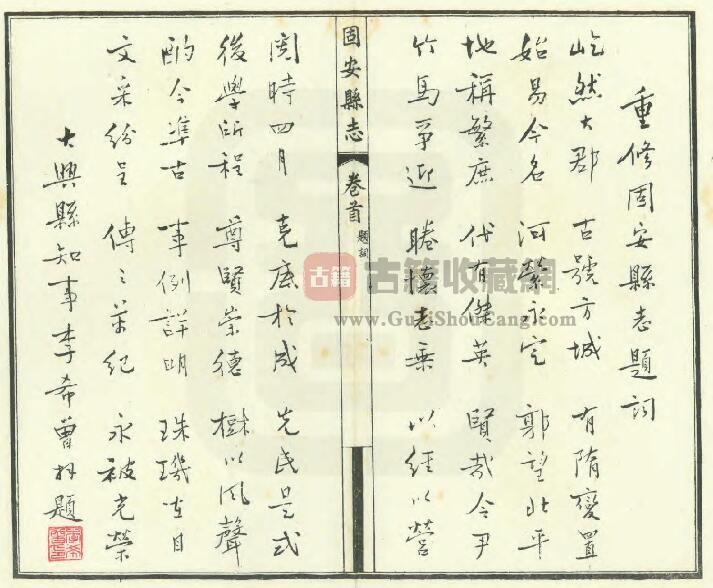 重修固安縣志題詞
屹然大郡 古號方城 有隋變置
始易今名 河縈永定 郭望北平
地稱繁庶 代有健英 賢哉令尹
竹馬爭迎 睠懷志乘 以經以營
固安縣志 卷首 題詞
閱時四月 克底於成 先民是式
後學所程 尊賢崇德 樹以風聲
酌今準古 事例詳明 珠璣在目
文采紛呈 傳之萬紀 永被光榮
大興縣知事李希曾拜題
古籍 古籍收藏網
www.GuJiShouCang.com